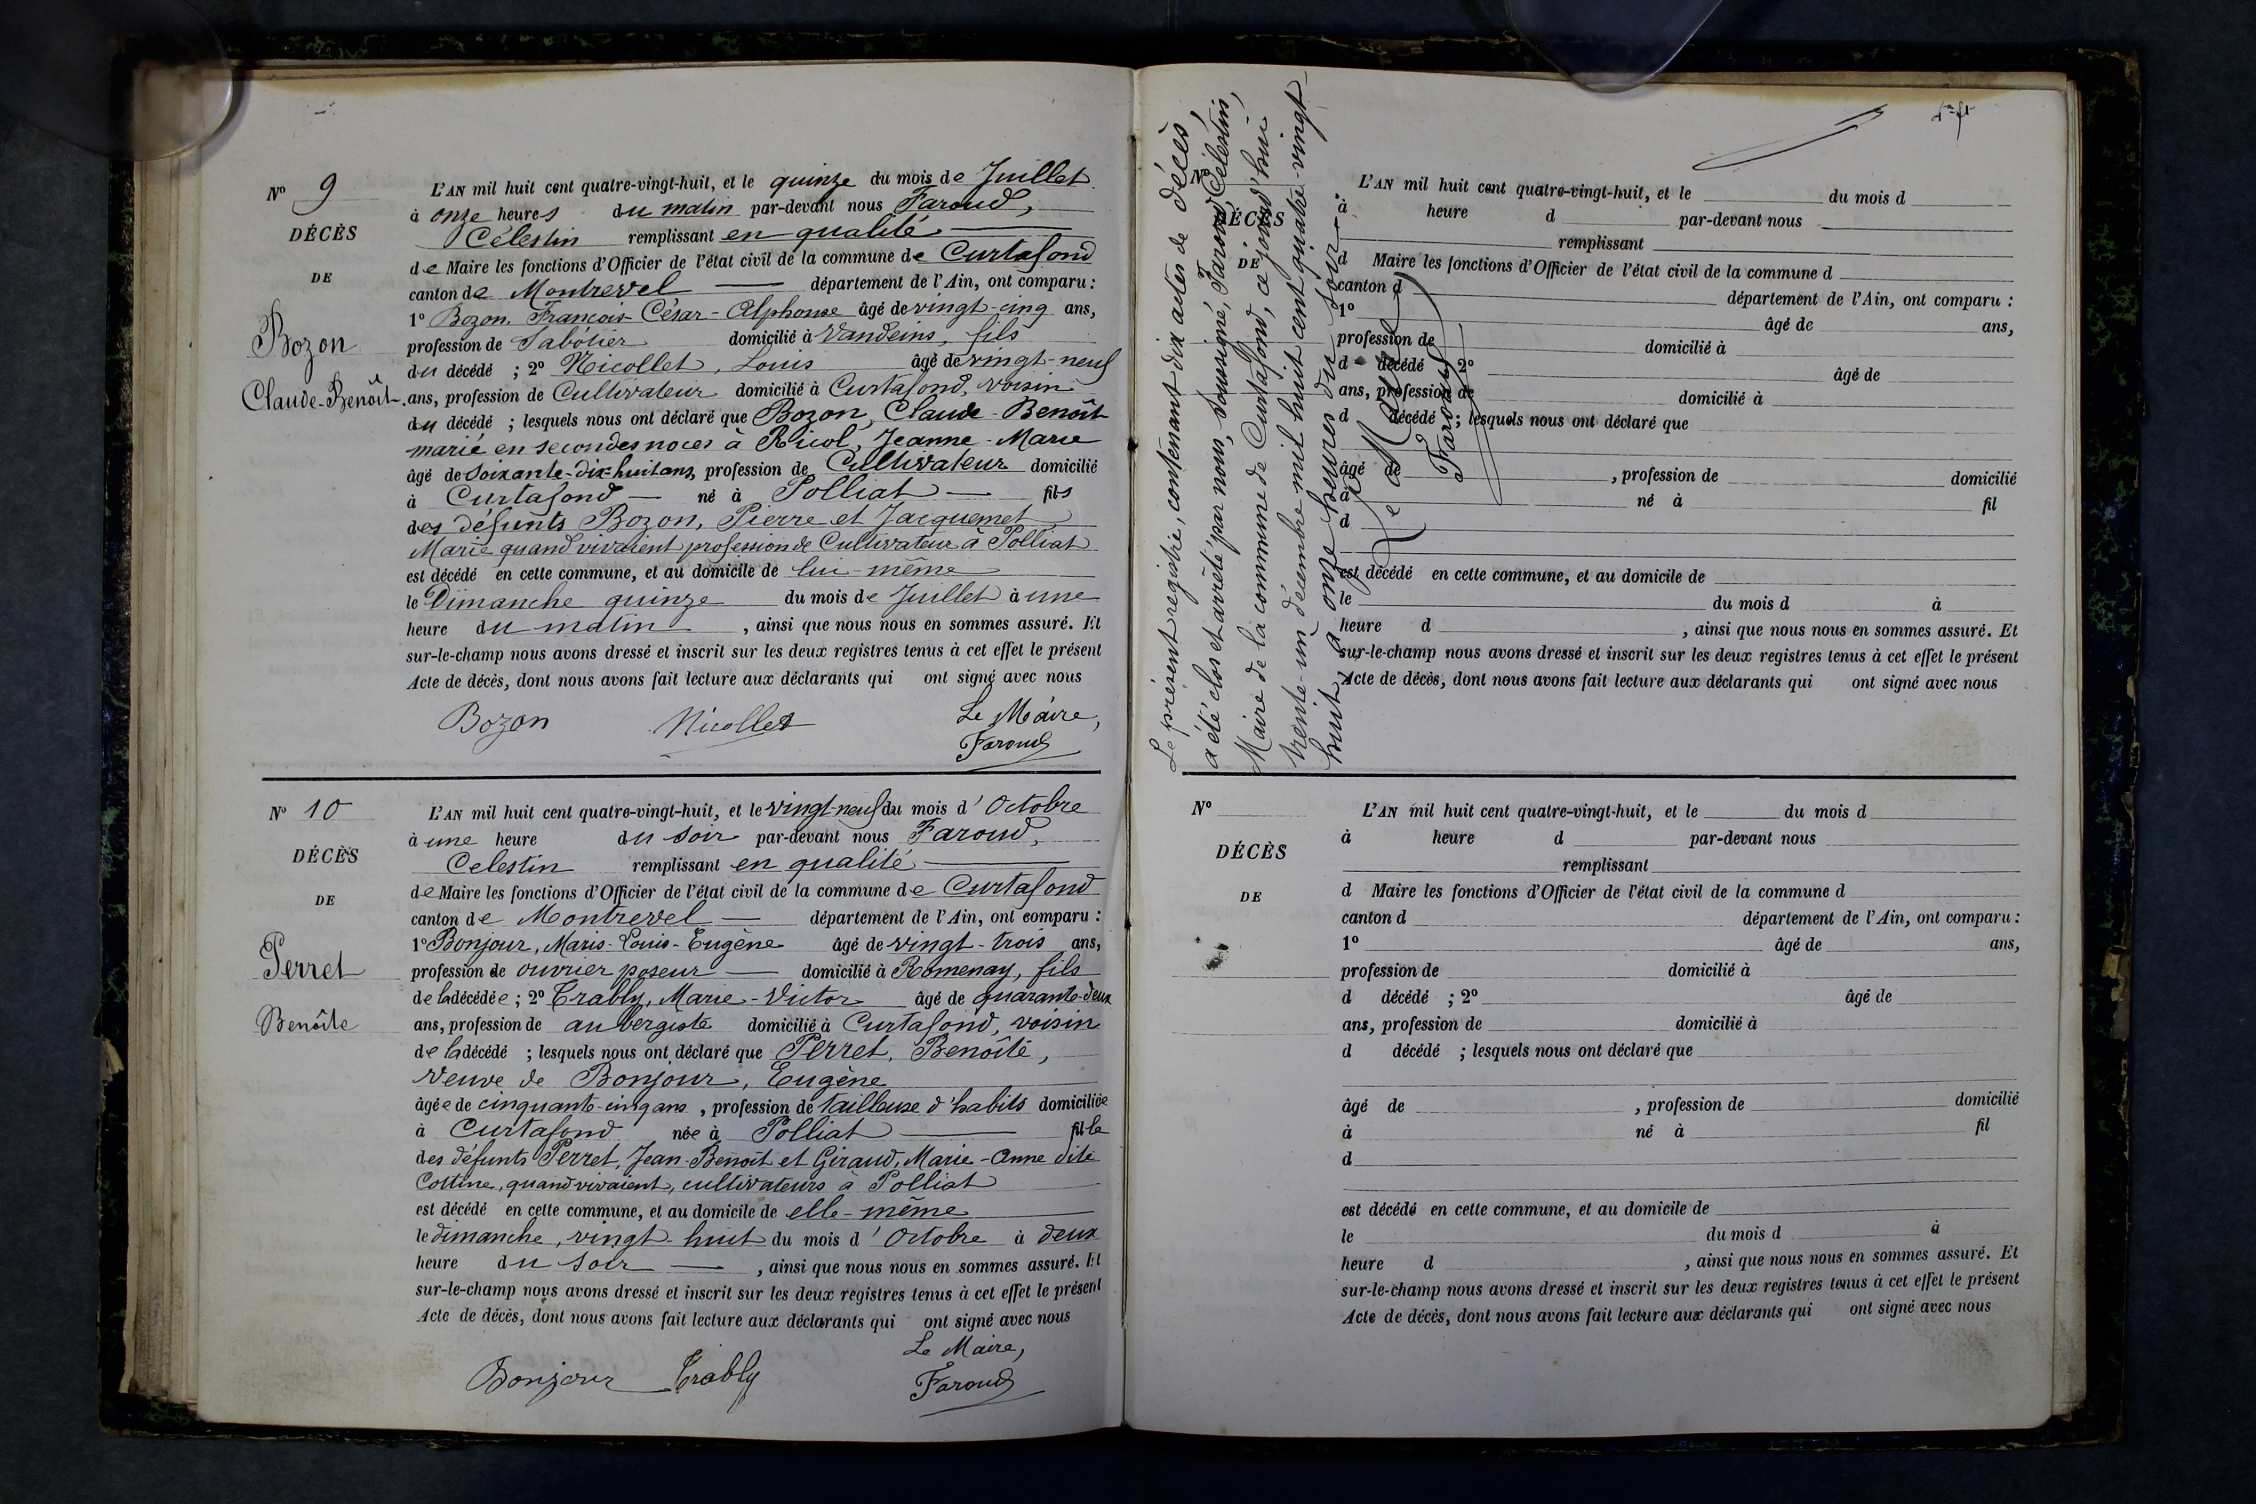 N° 9
DÉCÈS
DE
Bozon
Claude-Benoît.
L'AN mil huit cent quatre-vingt-huit, et le quinze du mois de Juillet
à onze heures du matin par-devant nous Faroud,
Célestin remplissant en qualité
de Maire les fonctions d'Officier de l'état civil de la commune de Curtafond
canton de Montrevel département de l'Ain, ont comparu :
1° Bozon, François-César-Alphonse âgé de vingt-cinq ans,
profession de Sabotier domicilié à Vandeins, fils
du décédé ; 2° Nicollet, Louis âgé de vingt-neuf
ans, profession de Cultivateur domicilié à Curtafond, voisin
du décédé ; lesquels nous ont déclaré que Bozon, Claude-Benoît
marié en secondes noces à Ricol, Jeanne-Marie
âgé de soixante-dix-huit ans, profession de Cultivateur domicilié
à Curtafond né à Polliat fils
des défunts Bozon, Pierre et Jacquemet
Marie quand vivaient profession de Cultivateur à Polliat
est décédé en cette commune, et au domicile de lui-même
le Dimanche quinze du mois de Juillet à une
heure du matin, ainsi que nous nous en sommes assuré. Et
sur-le-champ nous avons dressé et inscrit sur les deux registres tenus à cet effet le présent
Acte de décès, dont nous avons fait lecture aux déclarants qui ont signé avec nous
Bozon Nicollet Le Maire,
Faroud
N° 10
DÉCÈS
DE
Perret
Benoîte
L'AN mil huit cent quatre-vingt-huit, et le vingt-neuf du mois d'Octobre
à une heure du soir par-devant nous Faroud,
Celestin remplissant en qualité
de Maire les fonctions d'Officier de l'état civil de la commune de Curtafond
canton de Montrevel département de l'Ain, ont comparu :
1° Bonjour, Maris-Louis-Eugène âgé de vingt-trois ans,
profession de ouvrier poseur domicilié à Romenay, fils
de la décédée ; 2° Trably, Marie-Victor âgé de quarante-deux
ans, profession de aubergiste domicilié à Curtafond, voisin
de la décédé ; lesquels nous ont déclaré que Perret, Benoîte,
veuve de Bonjour, Eugène
âgée de cinquante-cinq ans, profession de tailleuse d'habits domiciliée
à Curtafond née à Polliat fille
des défunts Perret, Jean-Benoît et Giraud, Marie-Anne dite
Cottine, quand vivaient, cultivateurs à Polliat
est décédé en cette commune, et au domicile de elle-même
le dimanche, vingt-huit du mois d'Octobre à deux
heure du soir, ainsi que nous nous en sommes assuré. Et
sur-le-champ nous avons dressé et inscrit sur les deux registres tenus à cet effet le présent
Acte de décès, dont nous avons fait lecture aux déclarants qui ont signé avec nous
Bonjour Trably Le Maire,
Faroud
Le présent registre, contenant dix actes de décès,
a été clos et arrêté par nous, soussigné, Faroud, Célestin,
Maire de la commune de Curtafond, ce jourd'hui
trente-un décembre mil huit cent quatre-vingt-
huit, à onze heures du soir
Le Maire
Faroud
N°
DÉCÈS
DE
L'AN mil huit cent quatre-vingt-huit, et le du mois d
à heure d par-devant nous
remplissant
d Maire les fonctions d'Officier de l'état civil de la commune d
canton d département de l'Ain, ont comparu :
1° âgé de ans,
profession de domicilié à
d décédé 2° âgé de
ans, profession de domicilié à
d décédé ; lesquels nous ont déclaré que
âgé de , profession de domicilié
à né à fil
d
est décédé en cette commune, et au domicile de
le du mois d à
heure d , ainsi que nous nous en sommes assuré. Et
sur-le-champ nous avons dressé et inscrit sur les deux registres tenus à cet effet le présent
Acte de décès, dont nous avons fait lecture aux déclarants qui ont signé avec nous
N°
DÉCÈS
DE
L'AN mil huit cent quatre-vingt-huit, et le du mois d
à heure d par-devant nous
remplissant
d Maire les fonctions d'Officier de l'état civil de la commune d
canton d département de l'Ain, ont comparu :
1° âgé de ans,
profession de domicilié à
d décédé ; 2° âgé de
ans, profession de domicilié à
d décédé ; lesquels nous ont déclaré que
âgé de , profession de domicilié
à né à fil
d
est décédé en cette commune, et au domicile de
le du mois d à
heure d , ainsi que nous nous en sommes assuré. Et
sur-le-champ nous avons dressé et inscrit sur les deux registres tenus à cet effet le présent
Acte de décès, dont nous avons fait lecture aux déclarants qui ont signé avec nous